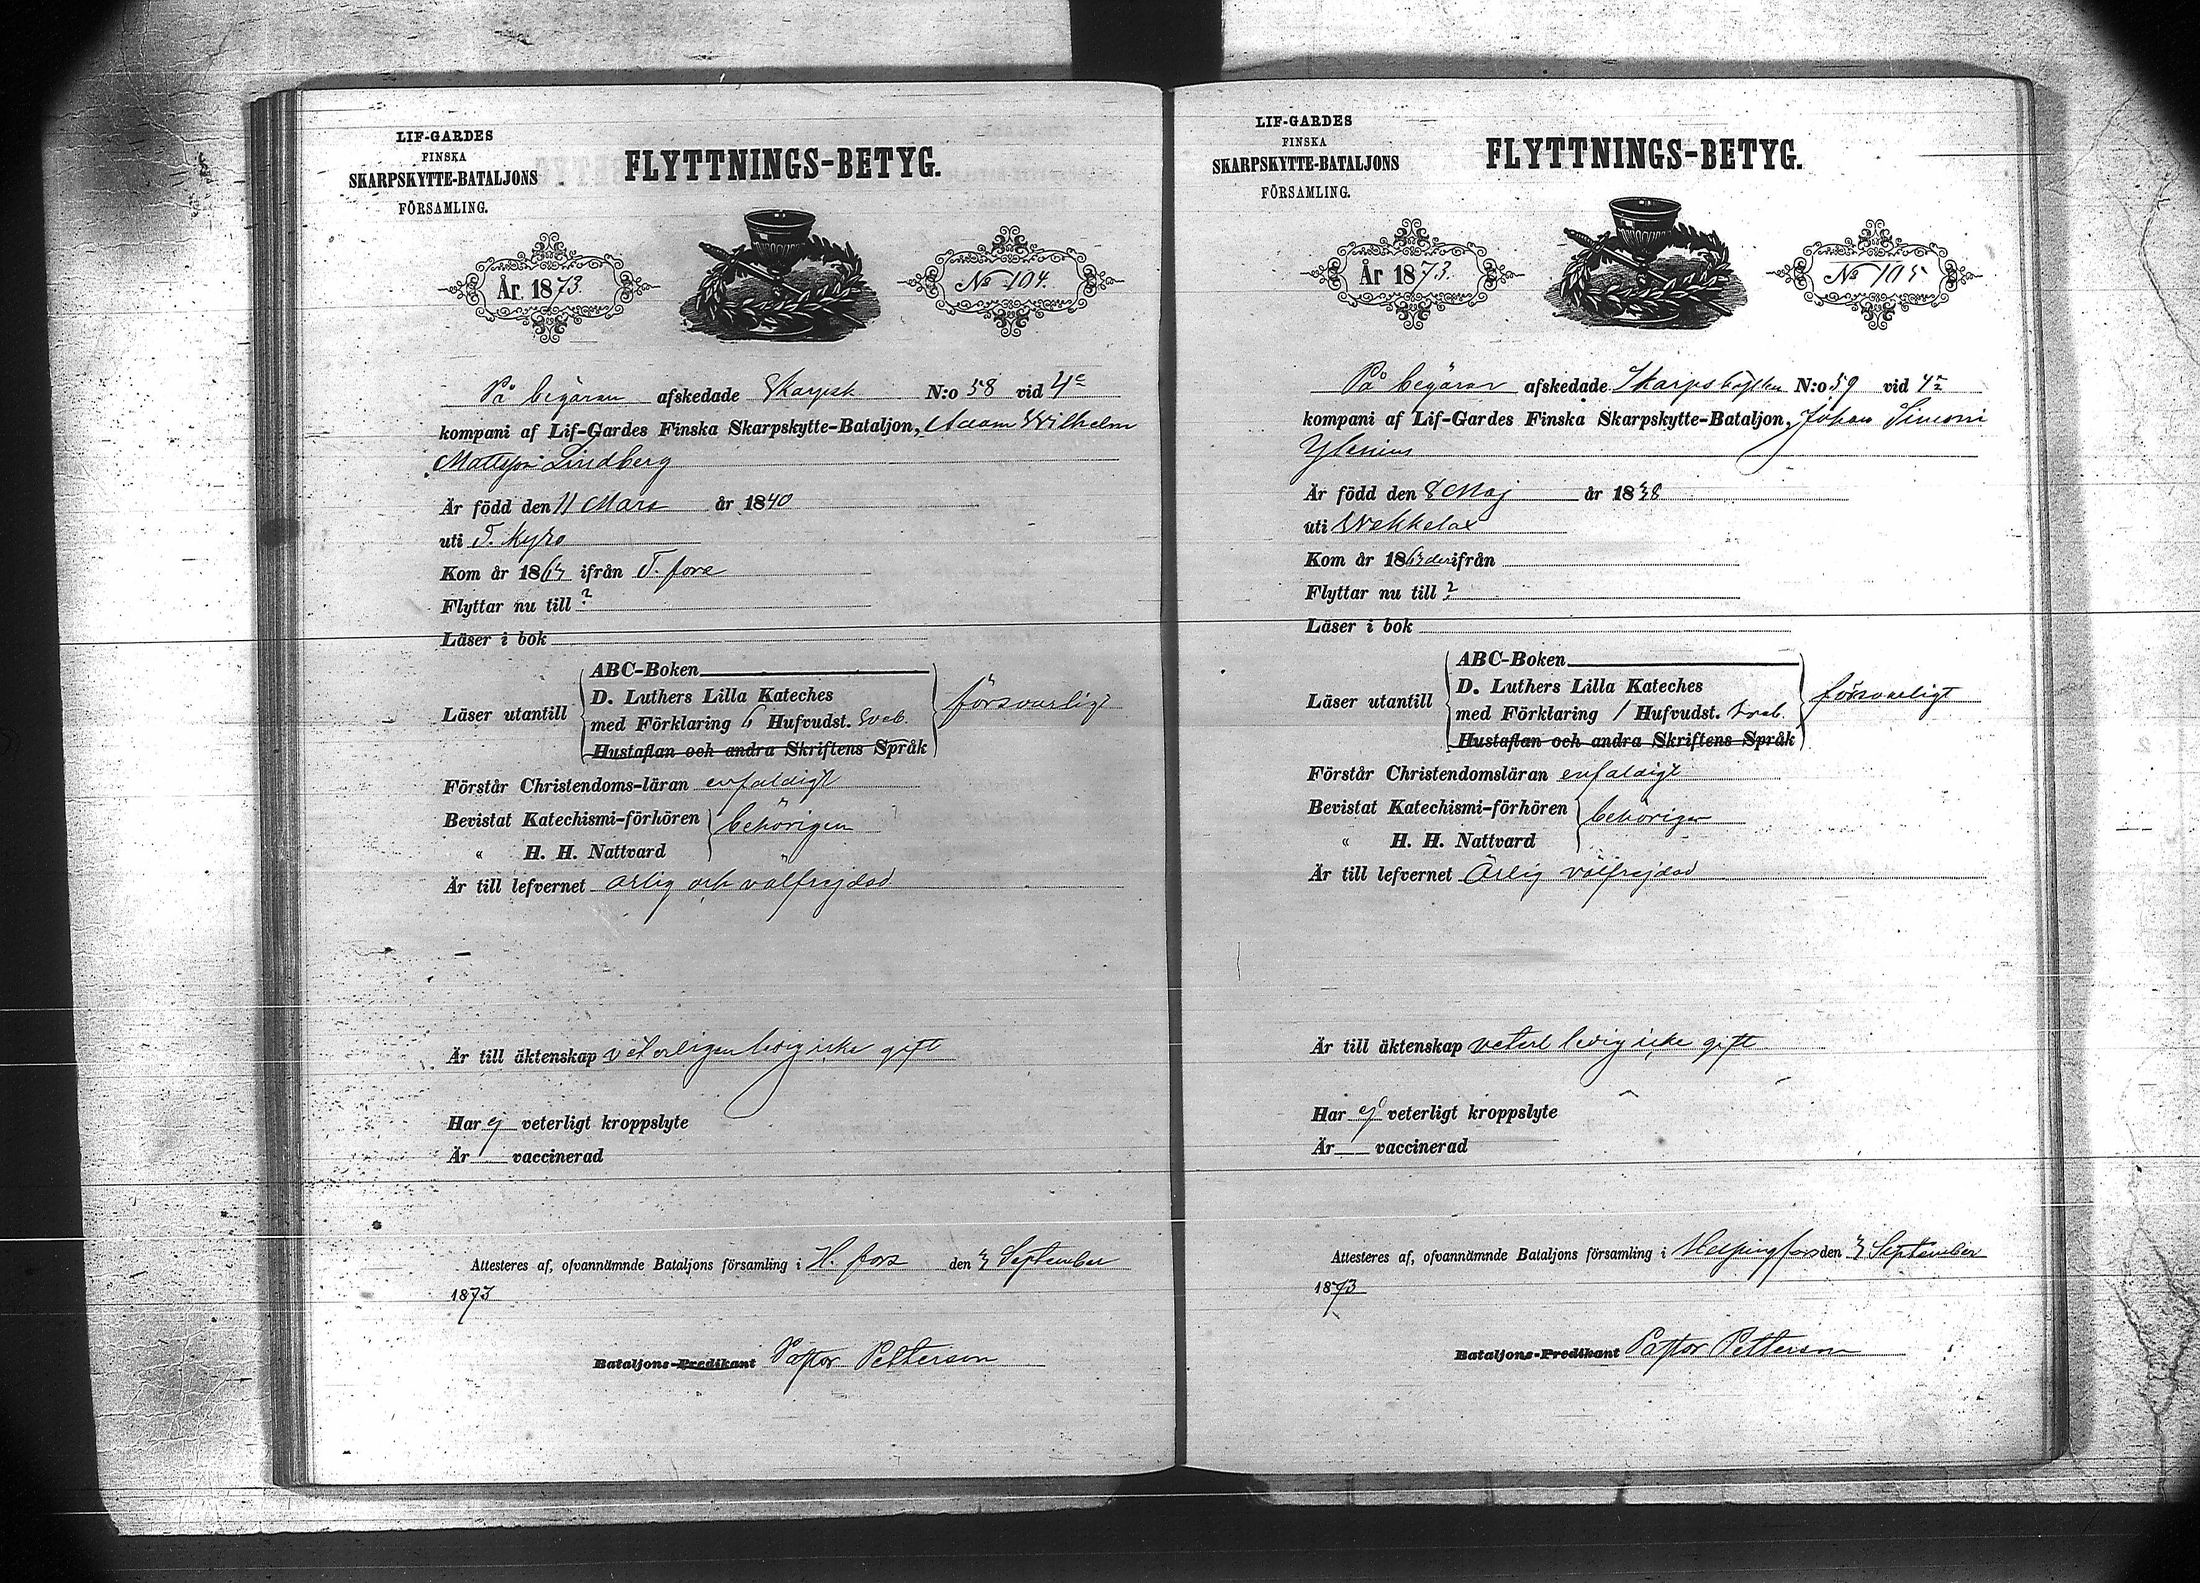 LIF-GARDES
FINSKA
SKARPSKYTTE-BATALJONS
FÖRSAMLING.
FLYTTNINGS-BETYG.
År 1873.
No 104.
På begäran afskedade Skarpsk N:o 58 vid 4e
kompani af Lif-Gardes Finska Skarpskytte-Bataljon, Adam Wilhelm
Mattsson Lindberg
Är född den 11 Mars år 1840
uti T. Kyro
Kom år 1863 ifrån T. fors
Flyttar nu till ?
Läser i bok
ABC-Boken
Läser utantill D. Luthers Lilla Kateches
med Förklaring 6 Hufvudst. Sveb. försvarligt
Hustaflan och andra Skriftens Språk
Förstår Christendoms-läran enfaldigt
Bevistat Katechismi-förhören behörigen
« H. H. Nattvard
Är till lefvernet ärlig och välfrejdad
Är till äktenskap veterligen ledig icke gift
Har ej veterligt kroppslyte
Är vaccinerad
Attesteras af, ofvannämnde Bataljons församling i H. fors den 3 September
1873
Bataljons-Predikant Pastor Petterson
LIF-GARDES
FINSKA
SKARPSKYTTE-BATALJONS
FÖRSAMLING.
FLYTTNINGS-BETYG.
År 1873.
No 105
På begäran afskedade Skarpskytten N:o 59 vid 4e
kompani af Lif-Gardes Finska Skarpskytte-Bataljon, Johan Simon
Ylenius
Är född den 8 Maj år 1838
uti Wekkelax
Kom år 1863 ifrån
Flyttar nu till ?
Läser i bok
ABC-Boken
Läser utantill D. Luthers Lilla Kateches
med Förklaring / Hufvudst. Sveb. försvarligt
Hustaflan och andra Skriftens Språk
Förstår Christendomsläran enfaldigt
Bevistat Katechismi-förhören behörigen
« H. H. Nattvard
Är till lefvernet Ärlig välfrejdad
Är till äktenskap veterl ledig icke gift
Har ej veterligt kroppslyte
Är vaccinerad
Attesteres af, ofvannämnde Bataljons församling i Helsingfors den 3 September
1873
Bataljons-Predikant Pastor Petterson